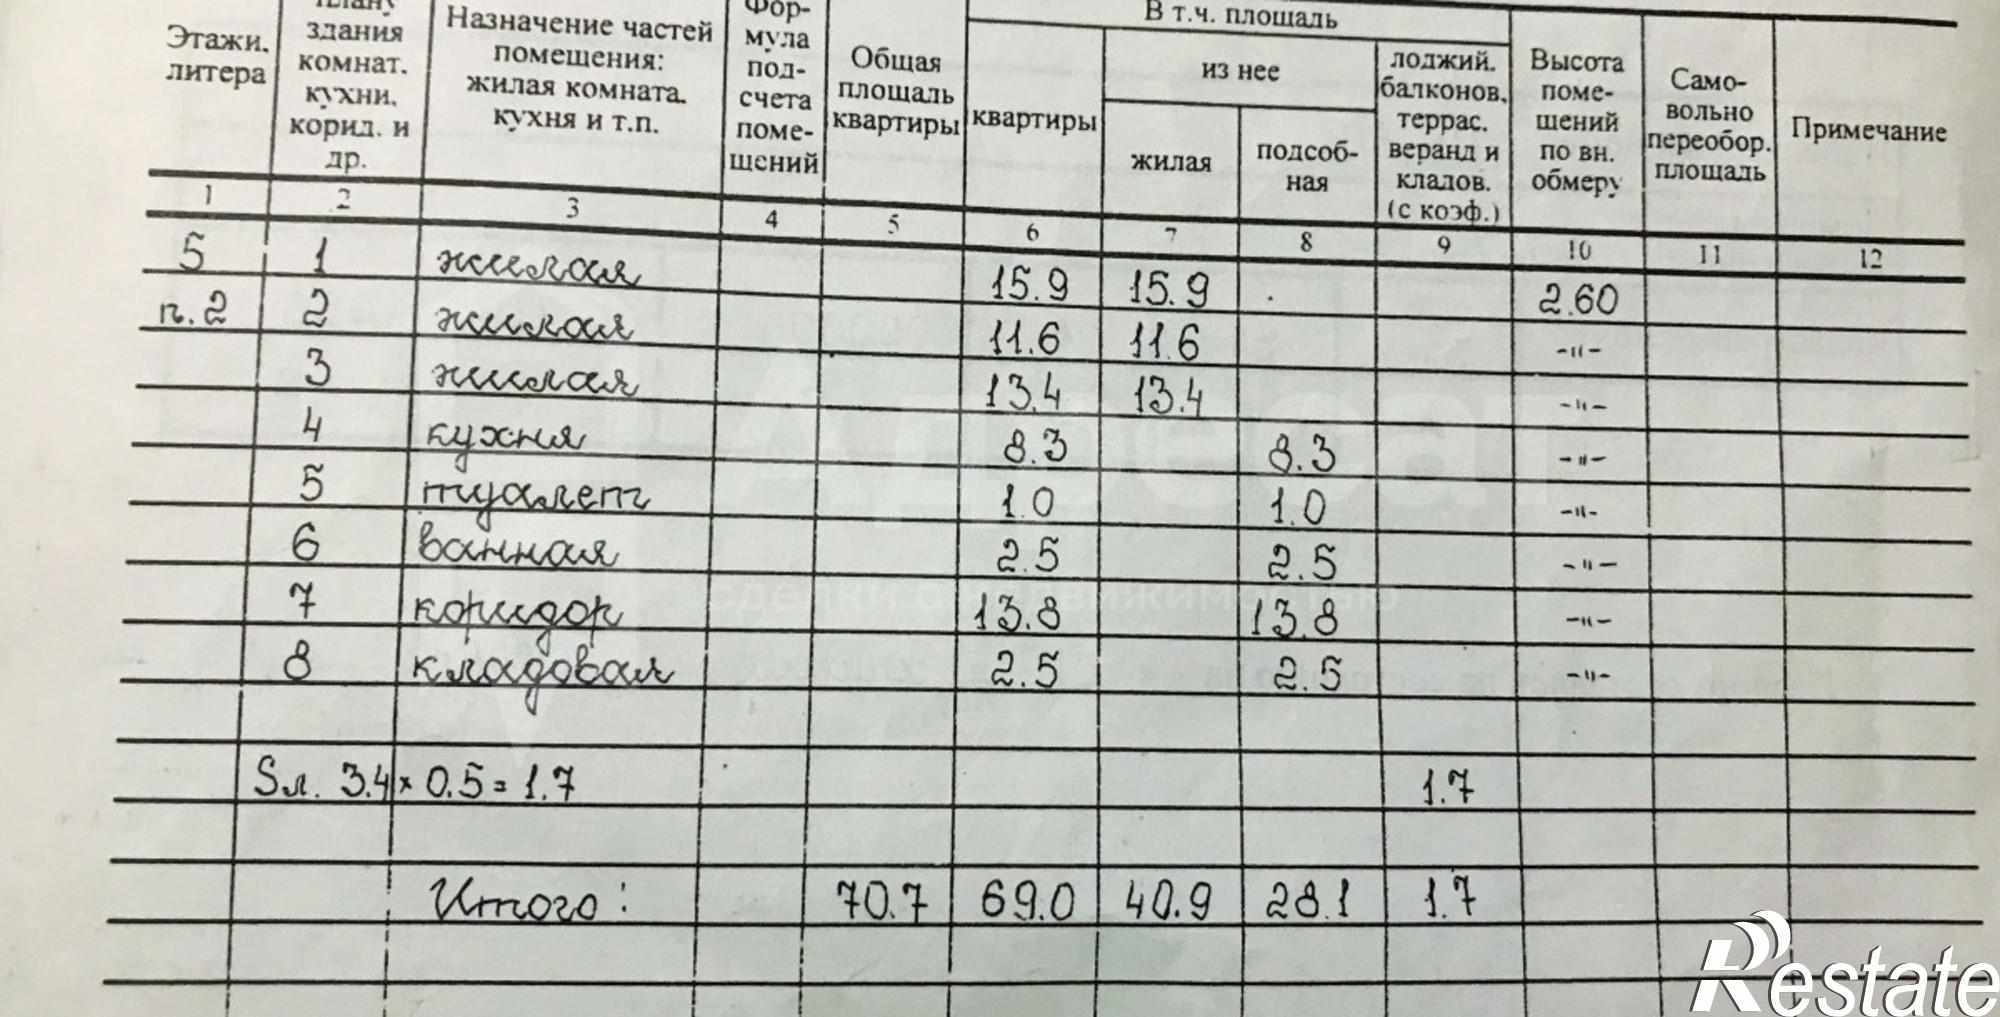 Этажи, литера | плану здания комнат. кухни. корид. и др. | Назначение частей помещения: жилая комната. кухня и т.п. | Фор-мула под-счета поме-щений | Общая площаль квартиры | В т.ч. плошаль | квартиры | из нее | жилая | подсоб-ная | лоджий. балконов, террас. веранд и кладов. (с коэф.) | Высота поме-щений по вн. обмеру | Само-вольно переобор. площадь | Примечание
1 2 3 4 5 6 7 8 9 10 11 12
5 1 жилая 15.9 15.9 2.60
п.2 2 жилая 11.6 11.6 -"-
3 жилая 13.4 13.4 -"-
4 кухня 8.3 8.3 -"-
5 туалет 1.0 1.0 -"-
6 ванная 2.5 2.5 -"-
7 коридор 13.8 13.8 -"-
8 кладовая 2.5 2.5 -"-
Sл. 3.4 × 0.5 = 1.7 1.7
Итого: 70.7 69.0 40.9 28.1 1.7
Restate